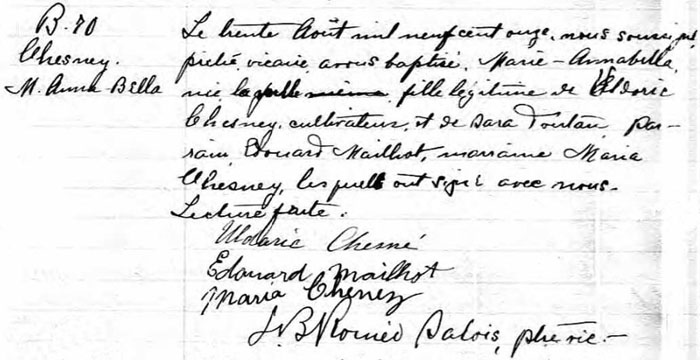 B.70
Chesney.
M. Anna-Bella
Le trente Août mil neufcent onze, nous soussigné
prêtre, vicaire avons baptisé, Marie-Annabella,
née la veille, fille légitime de Uldoric
Chesney, cultivateur, et de Sara Toutan, par-
rain, Edouard Mailhot, marraine Maria
Chesney, lesquels ont signé avec nous.
Lecture faite.
Uldaric Chesné
Edouard Mailhot
Maria Cheney
J. B Roméo Salois, ptre vic.-